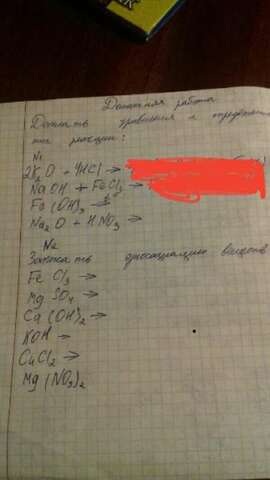 Домашняя работа
Дописать уравнения и определить
тип реакции:
№1
2K₂O + 4HCl →
NaOH + FeCl₃ →
Fe(OH)₃ →
Na₂O + HNO₃ →
№2
Записать диссоциацию веществ
FeCl₃ →
MgSO₄ →
Ca(OH)₂ →
KOH →
CuCl₂ →
Mg(NO₃)₂